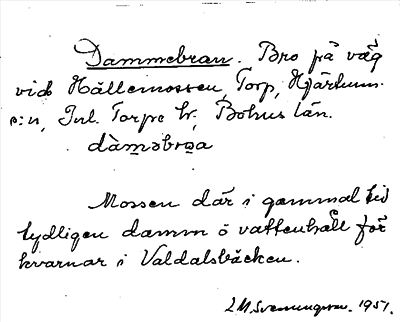 Dammebran. Bro på väg
vid Hällemossen, Torp, Hjärtums
s:n, Inl. Torpe hd, Bohus län.
dàmǝbrɷa
Mossen där i gammal tid
tydligen damm o vattenhåll för
kvarnar i Valdalsbäcken.
L M Svenungsson. 1951.